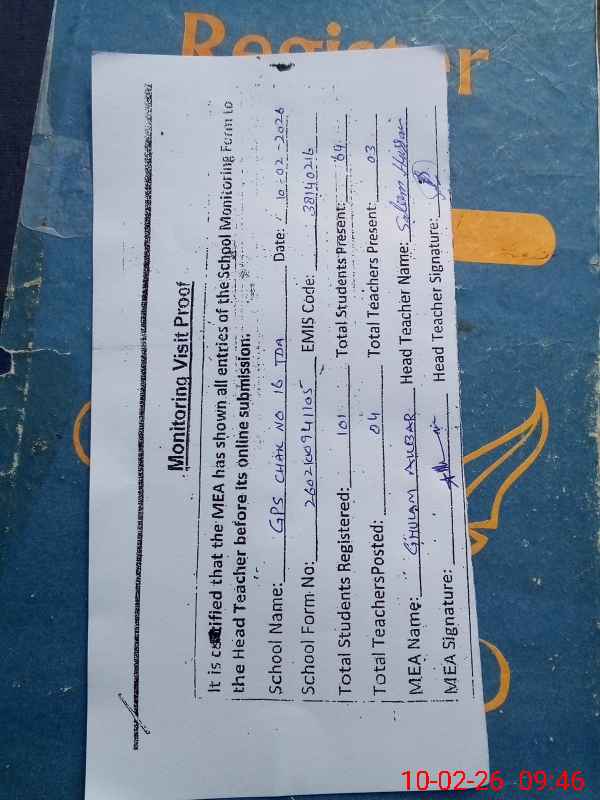 Register
Monitoring Visit Proof
It is certified that the MEA has shown all entries of the School Monitoring Form to
the Head Teacher before its online submission.
School Name: GPS CHAK NO 16 TDA Date: 10-02-2026
School Form No: 2602100941105 EMIS Code: 38140216
Total Students Registered: 101 Total Students Present: 69
Total TeachersPosted: 04 Total Teachers Present: 03
MEA Name: GHULAM AKBAR Head Teacher Name:
MEA Signature: Head Teacher Signature:
10-02-26 09:46